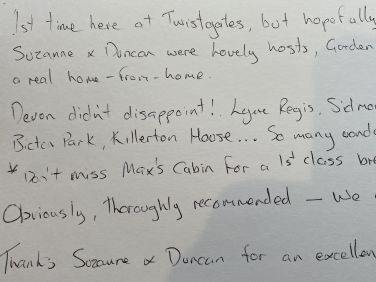 1st time here at Twistgates, but hopefully
Suzanne & Duncan were lovely hosts, Garden
a real home-from-home.
Devon didn't disappoint! Lyme Regis, Sidmo
Bicton Park, Killerton House... So many wond
* Don't miss Max's Cabin for a 1st class bre
Obviously, thoroughly recommended - We
Thanks Suzanne & Duncan for an excellen